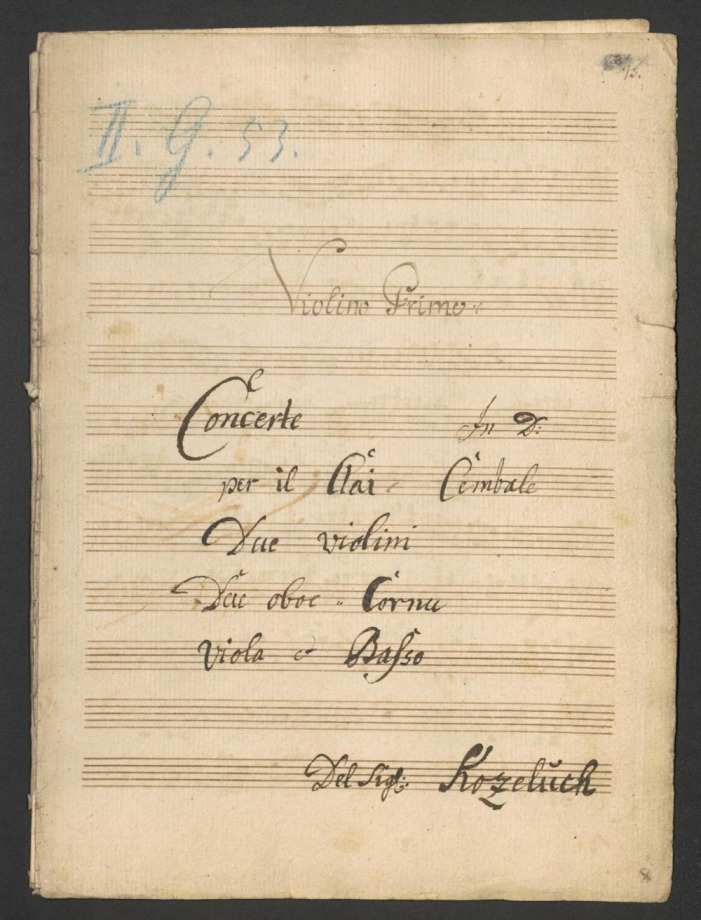 15.
II. G. 53.
Violino Primo
Concerte In D:
per il Clai Cembale
Due violini
Due oboe Cornu
Viola et Basso
Del Sigl: Kozeluch
8